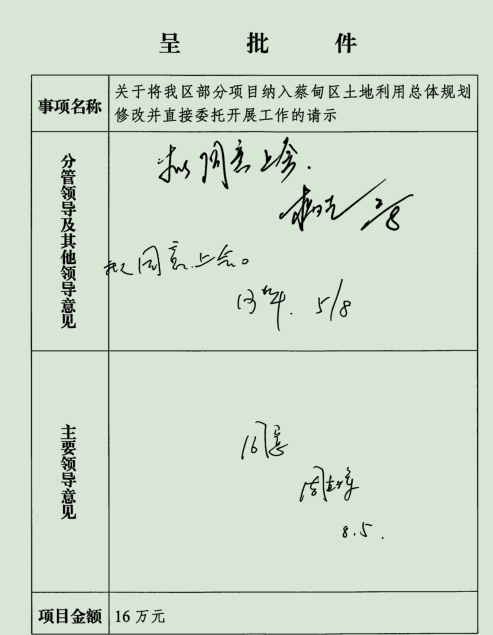 呈批件
事项名称
关于将我区部分项目纳入蔡甸区土地利用总体规划
修改并直接委托开展工作的请示
分管领导及其他领导意见
拟同意上会.
2/8
拟同意上会。
5/8
主要领导意见
同意
8.5.
项目金额
16万元